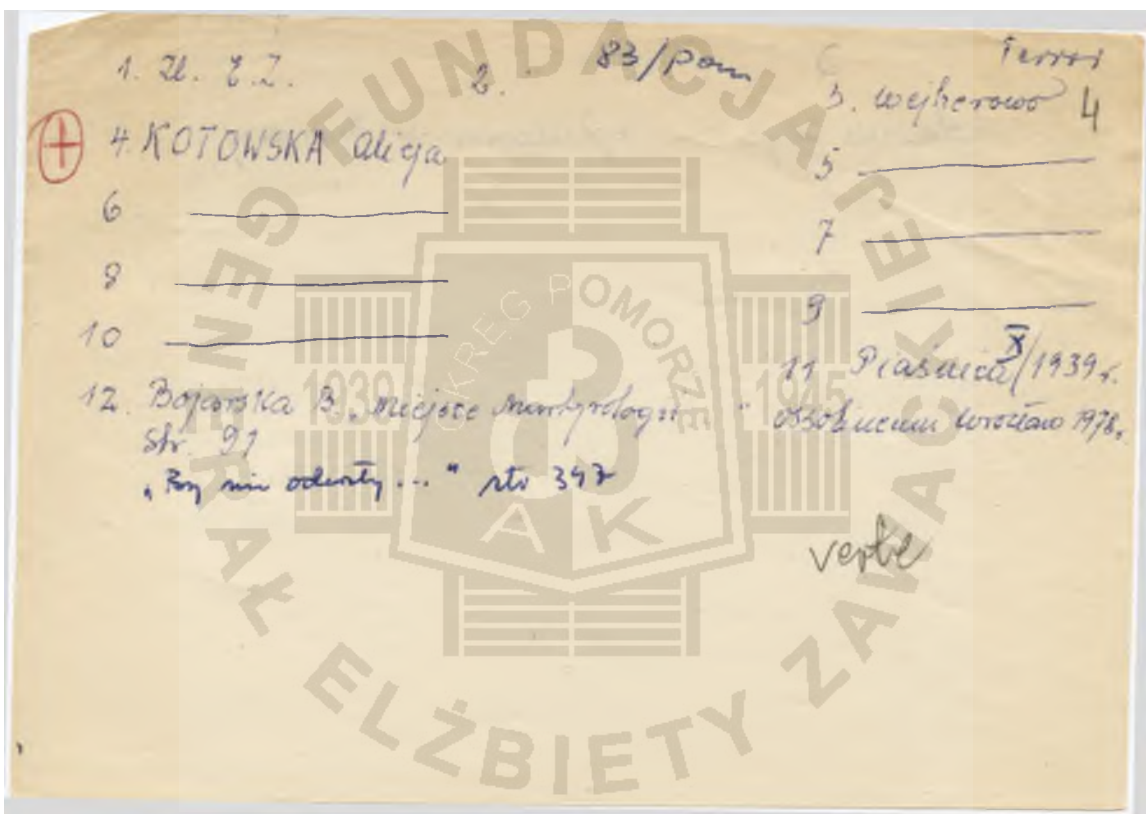 1. Zb. E.Z. 2. 83/Pom Terror
3. Wejherowo 4
4. KOTOWSKA Alicja
5
6
7
8
9
10
11 Piaśnica X/1939 r.
12. Bojarska B. "Miejsce Martyrologii" Ossolineum Wrocław 1978.
Str. 91
"By nie odeszły..." str 347
verte
FUNDACJA GENERAŁ ELŻBIETY ZAWACKIEJ
OKRĘG POMORZE
1939 1945
AK